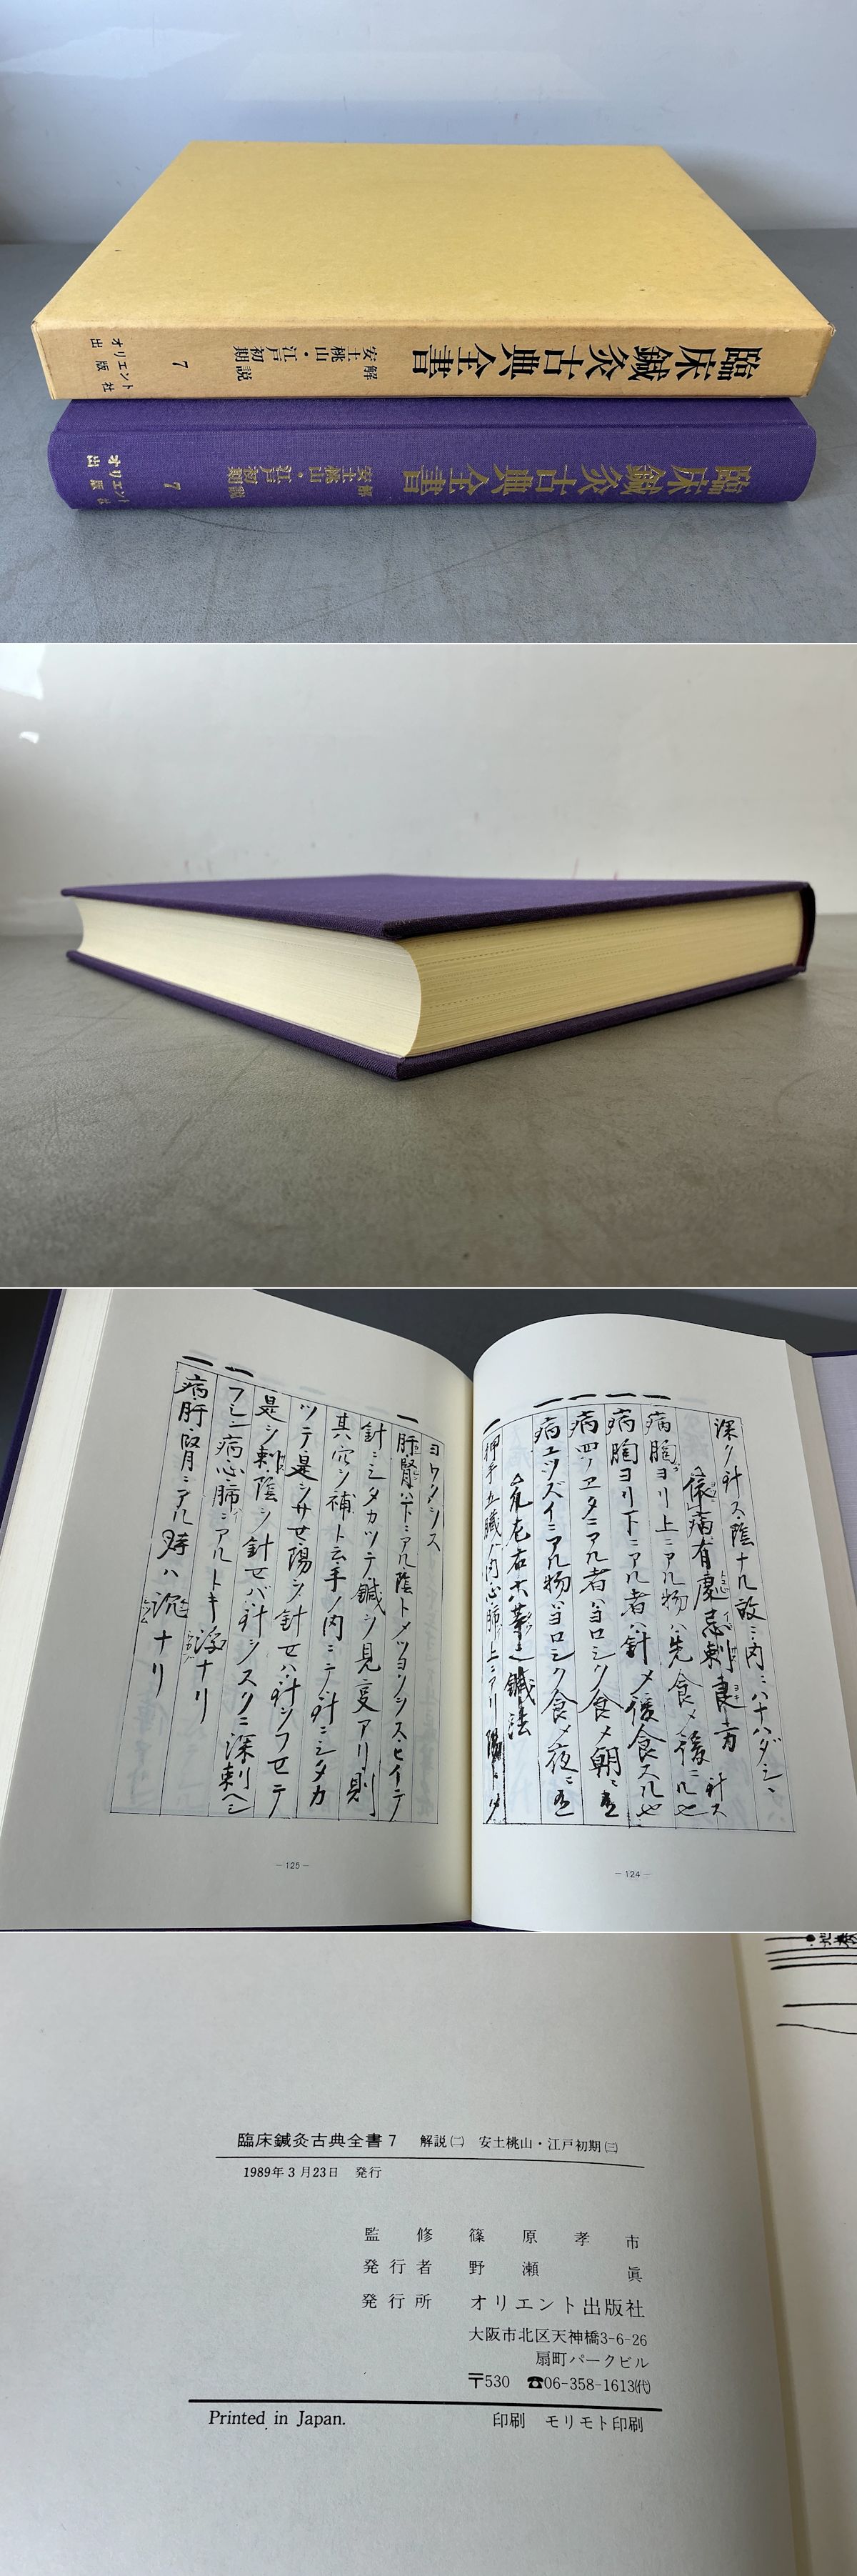 臨床鍼灸古典全書
解説
安土桃山・江戸初期
7
オリエント
出版社
臨床鍼灸古典全書
解説
安土桃山・江戸初期
7
オリエント
出版社
深ク針ス陰ナル故ニ内ニハナハダシ、
依病有慶忌刺良方
病胸ヨリ上ニアル物ハ先食メ後ニ
病胸ヨリ下ニアル者ハ針メ後食スル也
病四ツヱタニアル者ハヨロシク食メ朝ニ
病コツズイニアル物ハヨロシク食メ夜ニ
鍼法
押手五臓ノ内心肺ハ上ニアリ陽
ヨワクシス
肝腎ハ下ニアル陰トメツヨクシス・ヒイテ
針ニシタカツテ鍼シ見変アリ則
其穴ヲ補ト云手ノ内ニテ針ニシタカ
ツテ是ヲサセ陽ヲ針セハ針ヲフセテ
是ヲ刺陰ヲ針セバ針シスクニ深刺ヘシ
フシン病心肺ニアルトキ浮ナリ
病肝腎ニアル時ハ沉ナリ
―125―
―124―
臨床鍼灸古典全書7 解説㈡ 安土桃山・江戸初期㈢
1989年3月23日 発行
監修 篠原孝市
発行者 野瀬眞
発行所 オリエント出版社
大阪市北区天神橋3-6-26
扇町パークビル
〒530 ☎06-358-1613㈹
Printed in Japan. 印刷 モリモト印刷